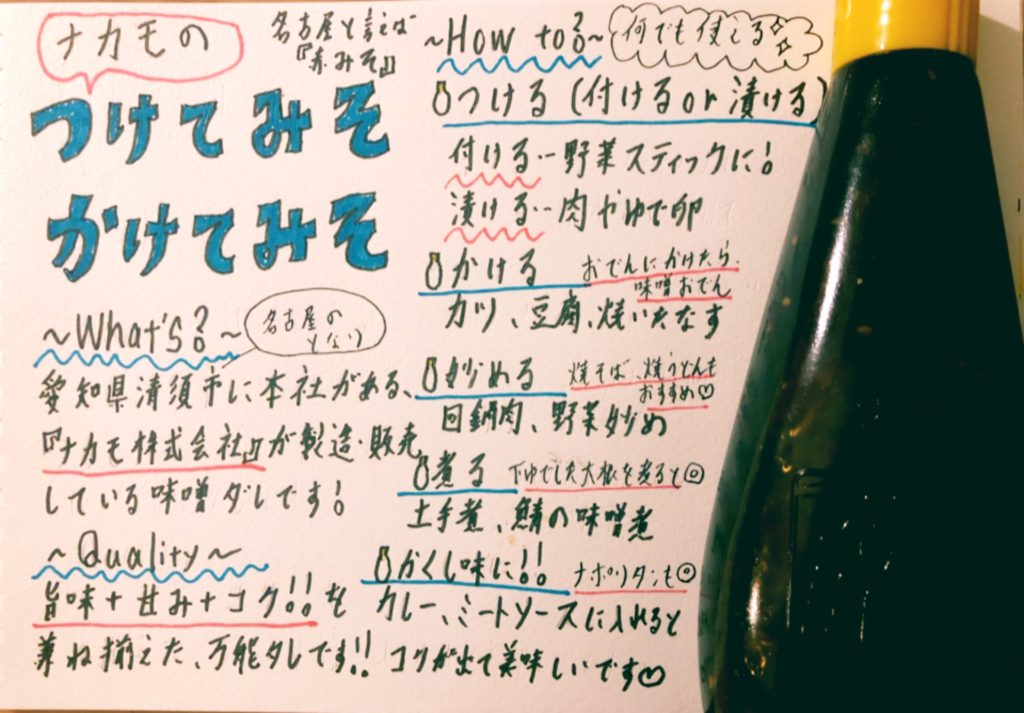 ナカモの
つけてみそ
かけてみそ
名古屋と言えば
『赤みそ』
~What's?~
名古屋の
となり
愛知県清須市に本社がある、
『ナカモ株式会社』が製造・販売
している味噌ダレです!
~Quality~
旨味+甘み+コク!!を
兼ね揃えた、万能タレです!!
~How to?~
何でも使える
つける(付けるor漬ける)
付ける…野菜スティックに!
漬ける…肉やゆで卵
かける
おでんにかけたら、
味噌おでん
カツ、豆腐、焼いたなす
炒める
焼そば、焼うどんも
おすすめ♡
回鍋肉、野菜炒め
煮る
下ゆでした大根を煮ると◎
土手煮、鯖の味噌煮
かくし味に!!
ナポリタンも◎
カレー、ミートソースに入れると
コクが出て美味しいです♡